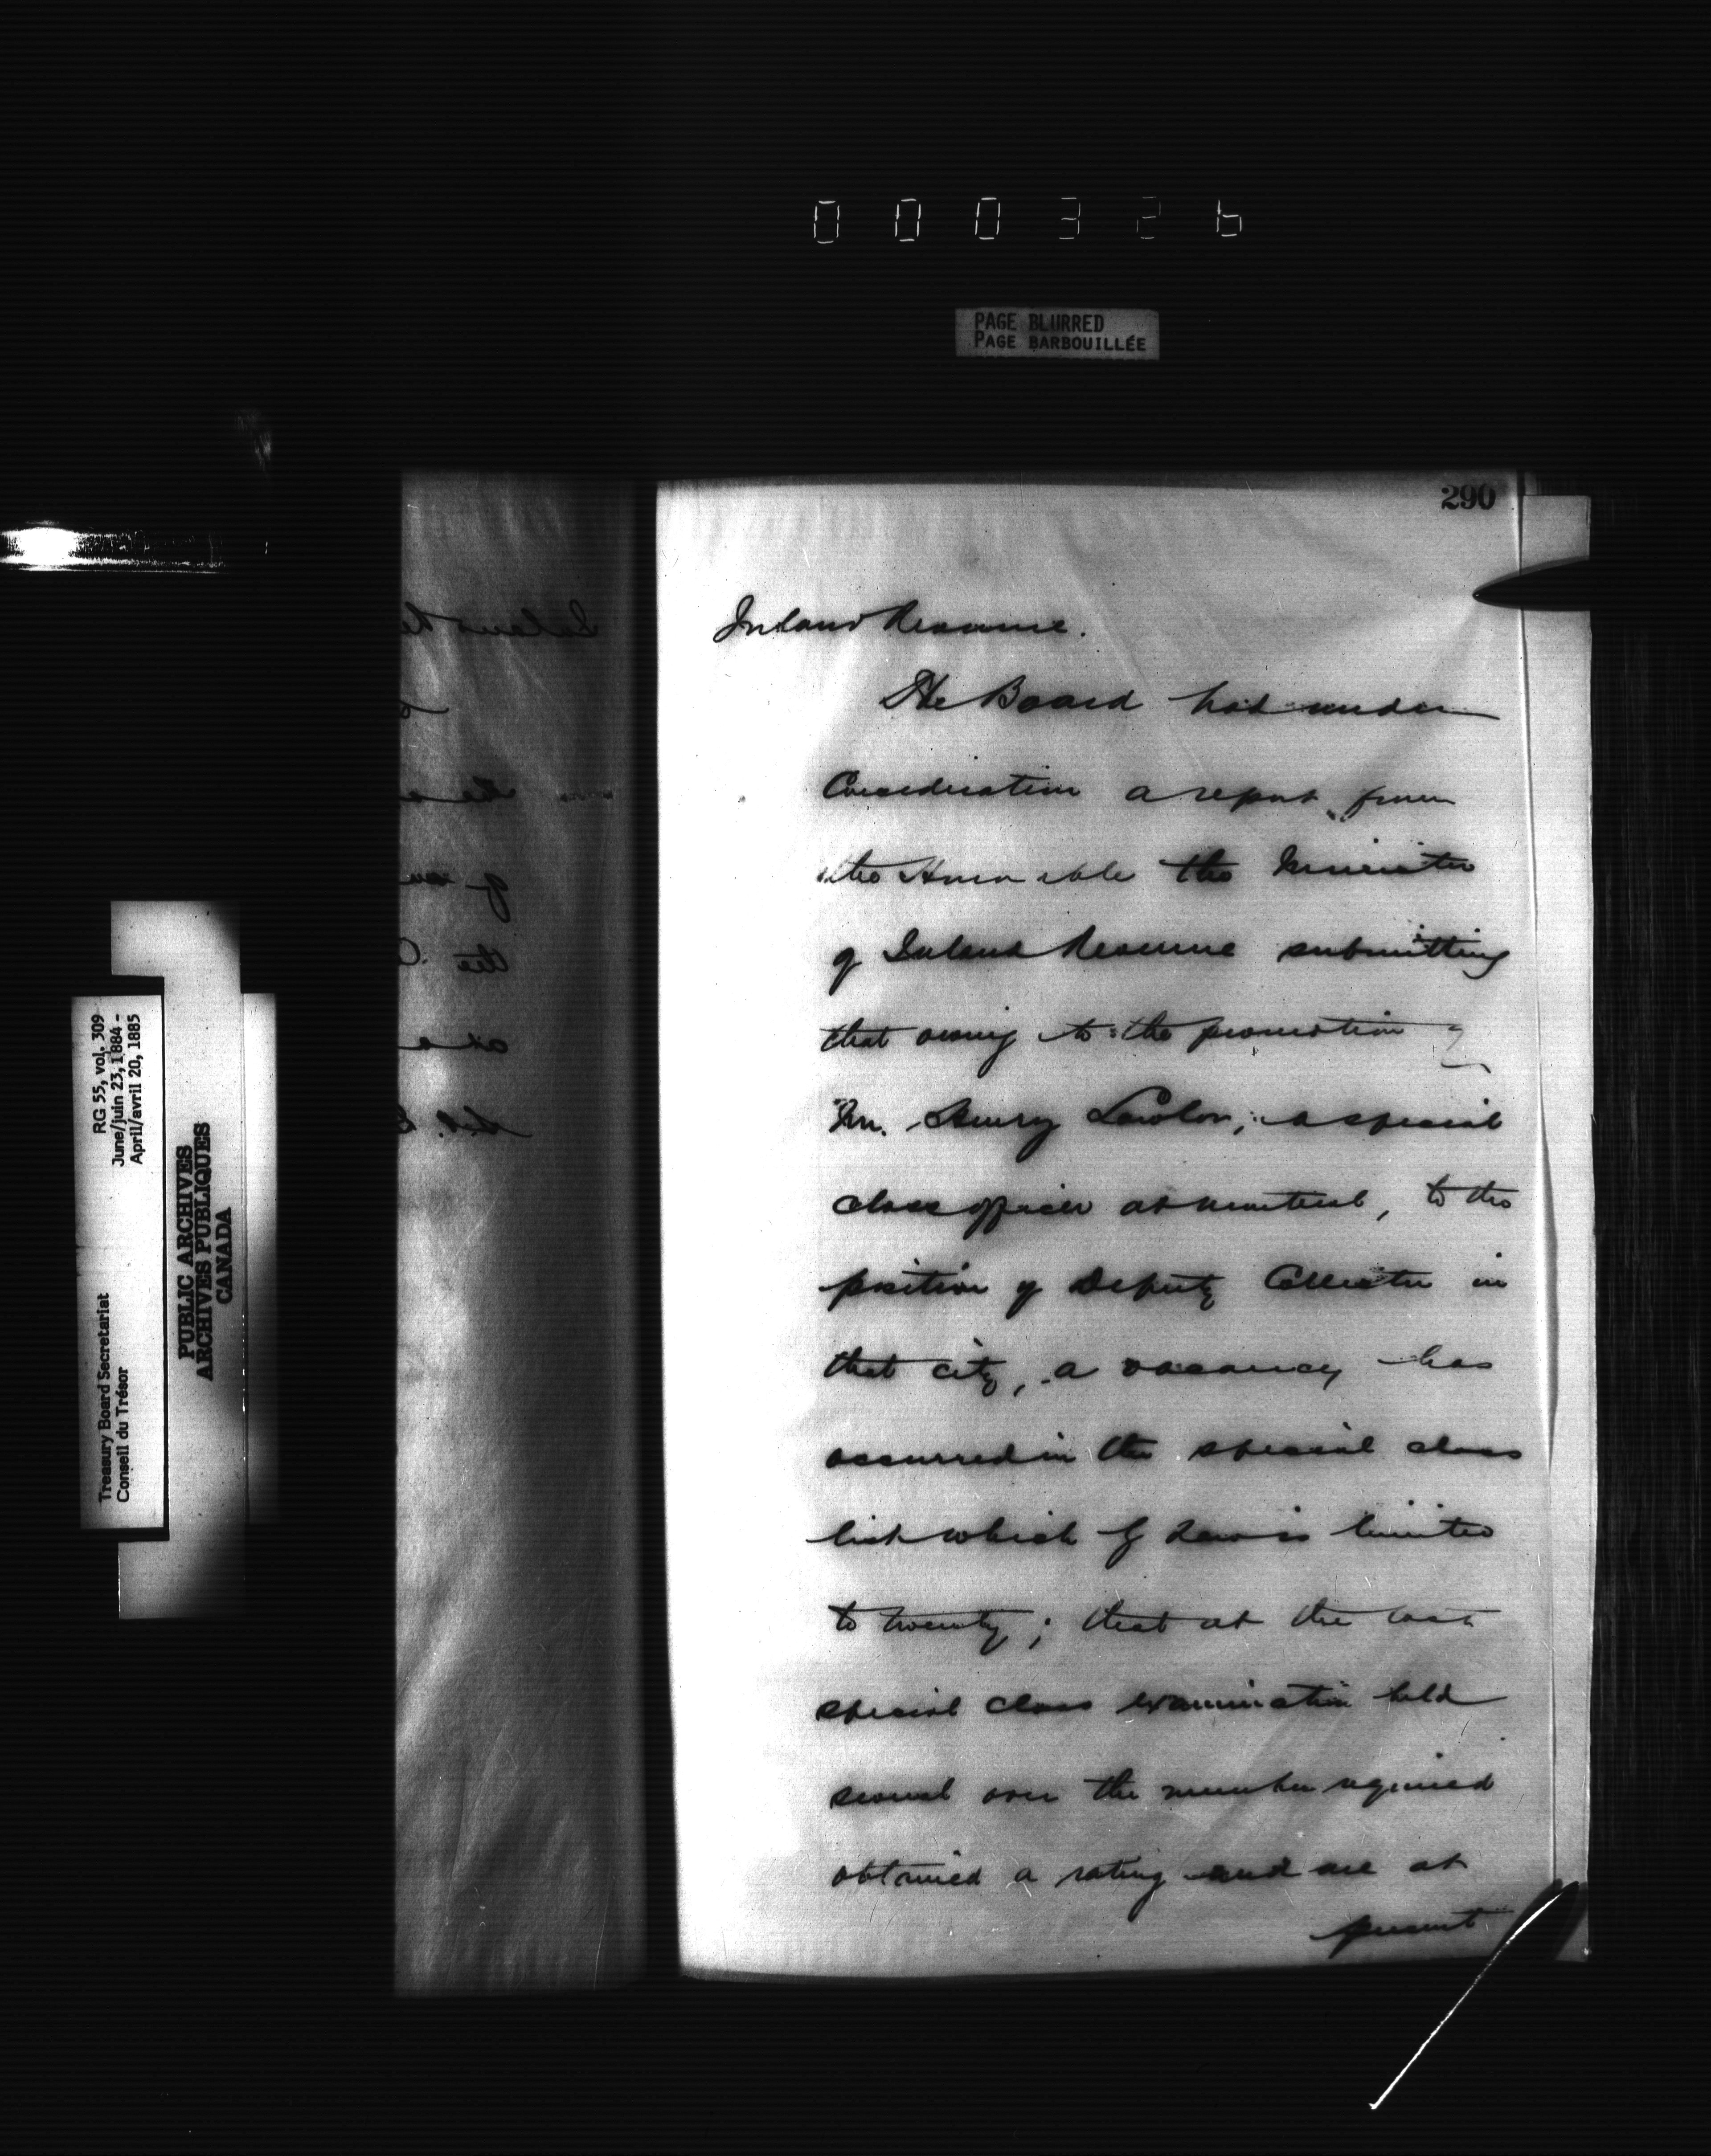 000326
PAGE BLURRED
PAGE BARBOUILLÉE
290
Inland Revenue.
The Board had under
Consideration a report from
the Honorable the Minister
of Inland Revenue submitting
that owing to the promotion of
Mr. Henry Lawlor, a special
class officer at Montreal, to the
position of Deputy Collector in
that city, a vacancy has
occurred in the special class
list which by Law is limited
to twenty; that at the last
special class examination held
several over the number required
obtained a rating and are at
present
RG 55, vol. 309
June/juin 23, 1884 -
April/avril 20, 1885
Treasury Board Secretariat
Conseil du Trésor
PUBLIC ARCHIVES
ARCHIVES PUBLIQUES
CANADA